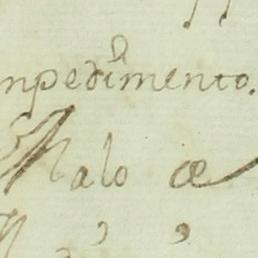 mpedimento.
Malo æ